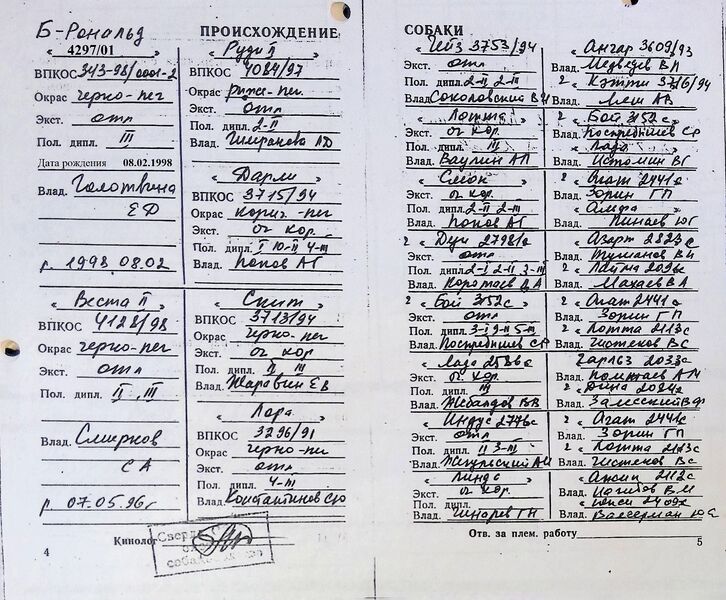 Б-Рональд
4297/01
ВПКОС 343-98/0001-2
Окрас черно-пег
Экст. отл
Пол. дипл. III
Дата рождения 08.02.1998
Влад. Голотвина
ЕФ
р. 1998 08.02
"Веста II"
ВПКОС 4128/98
Окрас черно-пег
Экст. отл
Пол. дипл. II, III
Влад. Смирнов
СА
р. 07.05.96г
4
ПРОИСХОЖДЕНИЕ
"Руди II"
ВПКОС 4084/97
Окрас рыже-пег.
Экст. отл
Пол. дипл. 2-II
Влад.
"Дарли"
ВПКОС 3715/94
Окрас корич-пег
Экст. оч кор.
Пол. дипл. I 10-II 4-III
Влад. Попов АГ
"Скит"
ВПКОС 3713/94
Окрас черно-пег.
Экст. оч кор.
Пол. дипл. II III
Влад. Жаравин ЕВ
"Лора"
ВПКОС 3296/91
Окрас черно-пег
Экст. отл
Пол. дипл. 4-III
Влад. Константинов СЮ
Кинолог
СОБАКИ
"Чейз 3753/94
Экст. отл
Пол. дипл. 2-II 2-III
Влад. Соколовский ВИ
Экст. оч кор.
Пол. дипл. III
Влад. Ваулин АП
"Слон"
Экст. оч кор.
Пол. дипл. 2-II 2-III
Влад. Попов АГ
Экст. отл
Пол. дипл. 2-I 2-II 3-III
Влад. Коротаев ВА
2 "Бой 3152с
Экст. отл
Пол. дипл. 3-I 9-II 5-III
Влад. Поспребышев СР
"Лада 2586с
Экст. оч кор.
Пол. дипл. III
Влад.
"Индус 2746с
Экст. отл
Пол. дипл. II 3-III
Влад. Жигульский АИ
"Линда"
Экст. оч кор.
Пол. дипл.
Влад.
"Ангар 3609/93
Влад. Медведев ВП
2 "Кэтти 3716/94
Влад. АВ
2 "Бой 3152с
Влад. Поспребышев СР
"Лада"
Влад. Истомин ВГ
2 "Агат 2441с
Влад. Зорин ГП
"Альфа"
Влад. Пинаев ЮГ
"Азарт 2823с
Влад. Туманов ВИ
2 "Лайма
Влад. Махаев ВА
2 "Агат 2441с
Влад. Зорин ГП
2 "Лотта 2113с
Влад. Чистеков ВС
2033с
Влад.
"Дина
Влад. Залесский ВФ
2 "Агат 2441с
Влад. Зорин ГП
2 "Лотта 2113с
Влад. Чистеков ВС
2112с
Влад.
Влад. Вассерман ЮС
Отв. за плем. работу
5